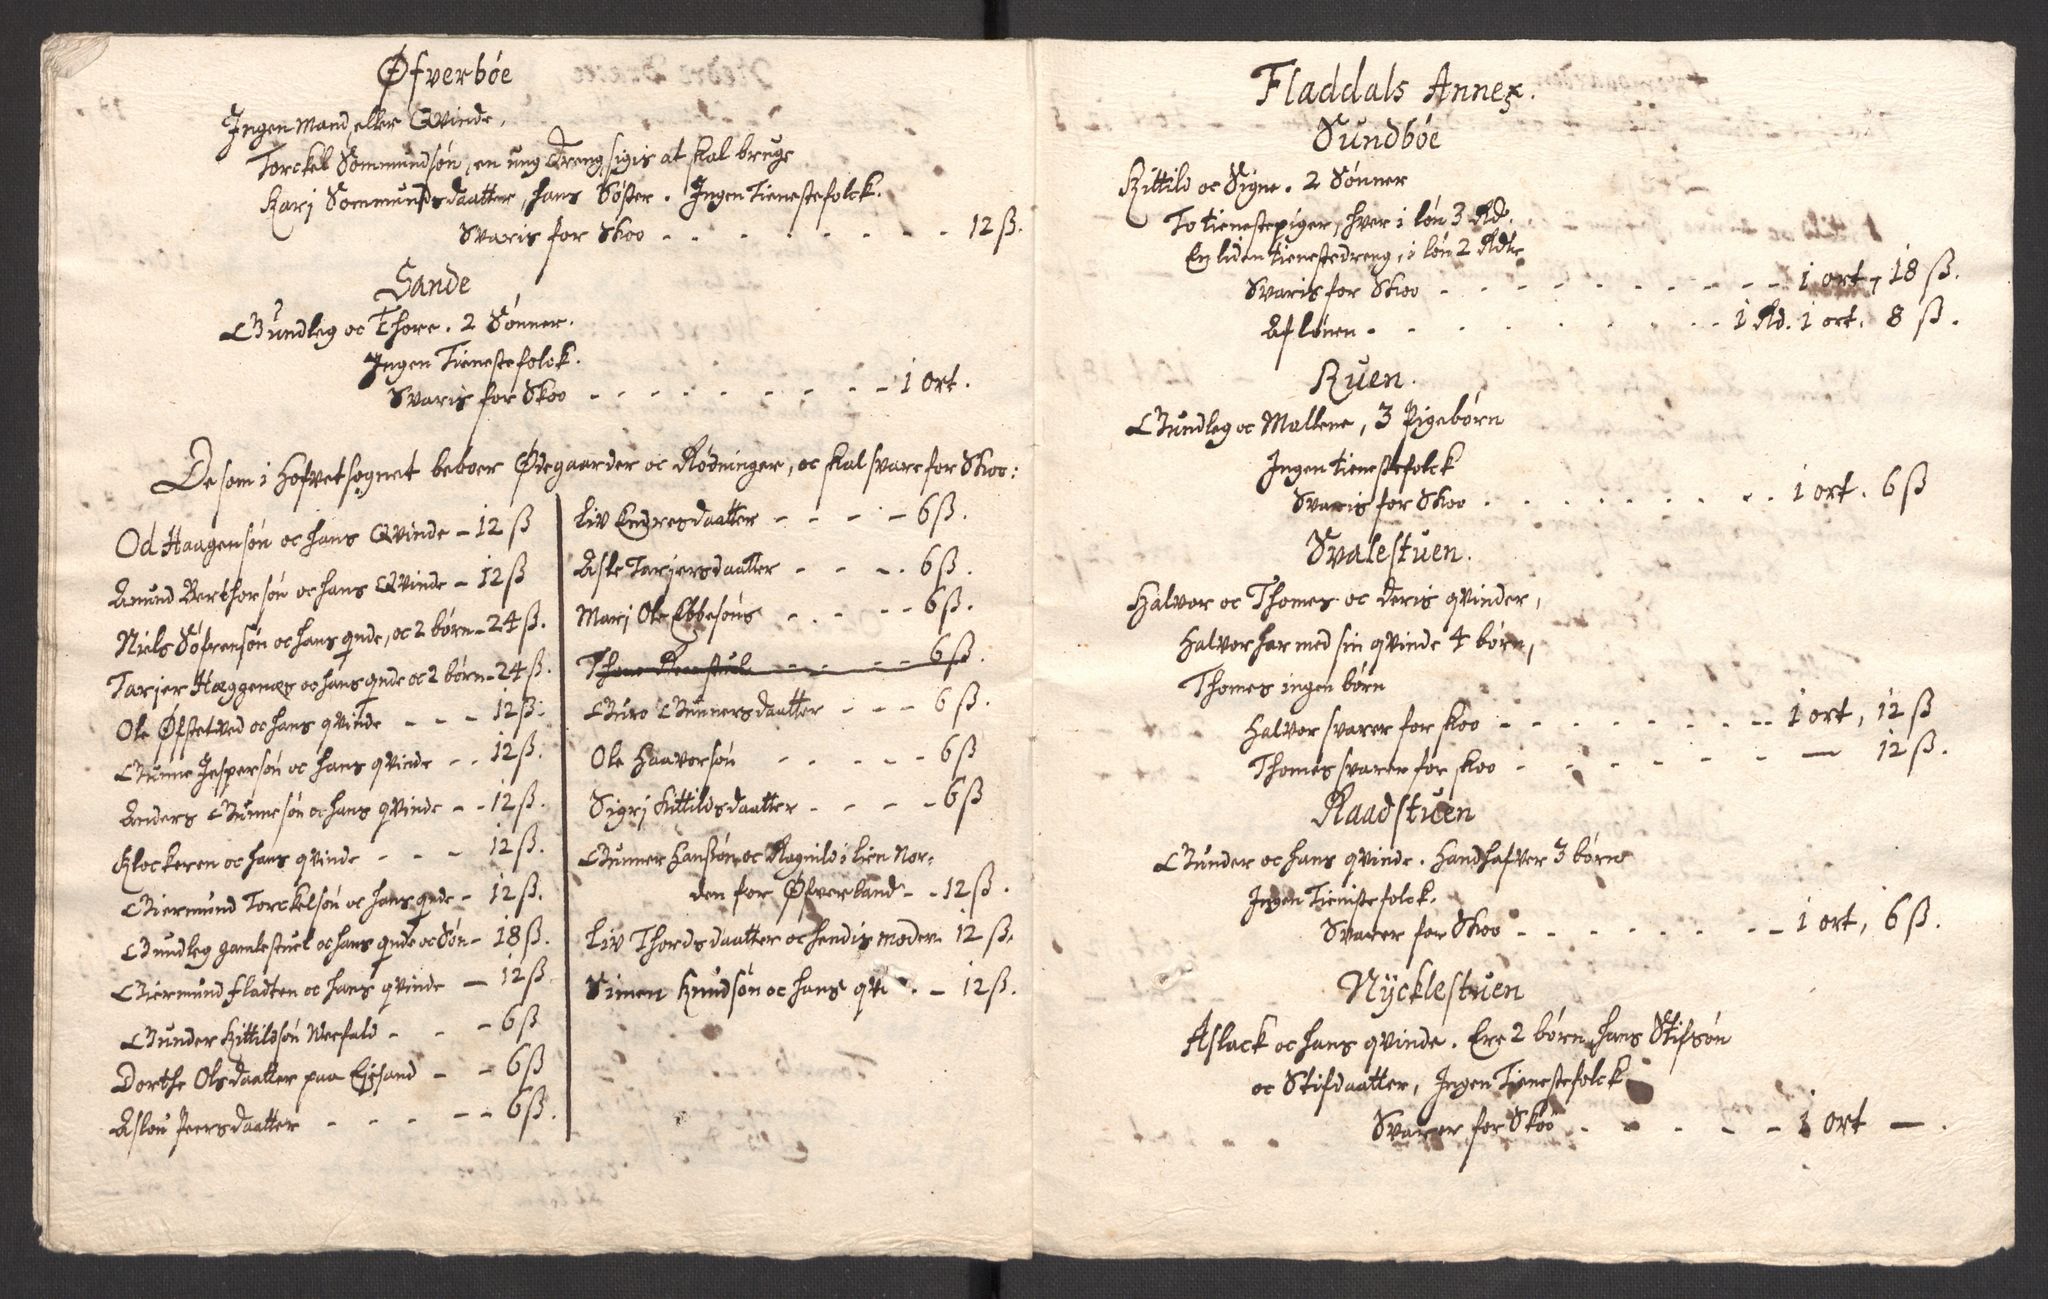 Øfverbøe
Ingen Mand eller Qvinde,
Torckel Sommundsøn, en ung dreng, sigis at skal bruge
Karj Sommundsdaatter, hans Søster. Ingen Tienestefolck.
Svaris for Skoo - - - - - - - - 12 ß.
Sande
Gundleg oc Thore. 2 Sønner.
Ingen Tienestefolck.
Svaris for Skoo - - - - - - - - - 1 Ort.
De som i Hofvetsognet beboer Ødegaarder oc Rødninger, oc skal svare for Skoo:
Od Haagensøn oc hans Qvinde - 12 ß
Amund Berthorsøn oc hans Qvinde - 12 ß
Niels Søfrensøn oc hans qnde, oc 2 børn - 24 ß.
Tarjer Hæggenæs oc hans qnde oc 2 børn - 24 ß.
Ole Øfstetved oc hans qvinde - - - 12 ß.
Gunne Jespersøn oc hans qvinde - - 12 ß.
Anders Gunnesøn oc hans qvinde - - 12 ß.
Klockeren oc hans qvinde - - - 12 ß.
Giermund Torckelsøn oc hans qnde - 12 ß.
Gundleg Gamlestuel oc hans qnde oc Søn - 18 ß.
Giermund Fladten oc hans qvinde - 12 ß.
Gunder Kittildsøn Neefald - - - 6 ß
Dorthe Olsdaatter paa Ejesand - - 6 ß
Aslou Peersdaatter - - - - - - 6 ß.
Liv Endresdaatter - - - - 6 ß.
Asle Tarjersdaatter - - - - 6 ß.
Marj Ole Ebbesøns - - - - 6 ß.
Thone - - - - - 6 ß.
Guro Gunnersdaatter - - - 6 ß.
Ole Haavorsøn - - - - - 6 ß
Sigrj Kittildsdaatter - - - - 6 ß
Gunner Hanssøn oc Ragnild i Lien Nor-
den for Øfverland - - 12 ß.
Liv Thordsdaatter oc hendis moder - 12 ß.
Simen Knudsøn oc hans qvi - 12 ß.
Fladdals Annex.
Sundbøe
Kittild oc Signe. 2 Sønner
To tienestepiger, hver i løn 3 Rd.
En liden tienestedreng, i løn 2 Rdlr
Svaris for Skoo - - - - - - - - - - 1 ort, 18 ß.
Af lønen - - - - - - - - - 1 Rd. 1 ort. 8 ß.
Ruen.
Gundleg oc Mallene, 3 Pigebørn
Ingen tienestefolck
Svaris for Skoo - - - - - - - - - 1 ort. 6 ß
Svalestuen.
Halvor oc Thomes oc deris qvinder,
Halvor har med sin qvinde 4 børn,
Thomes ingen børn
Halvor svarer for skoo - - - - - - - - 1 ort, 12 ß
Thomes svarer for skoo - - - - - - - — 12 ß.
Raadstuen
Gunder oc hans qvinde. Hand hafver 3 børn
Ingen Tienistefolck.
Svarer for Skoo - - - - - - - - 1 ort, 6 ß.
Nÿcklestuen
Aslack oc hans qvinde. Ere 2 børn, hans Stifsøn
oc Stifdaatter, Ingen Tienestefolck
Svarer for Skoo - - - - - 1 ort —.